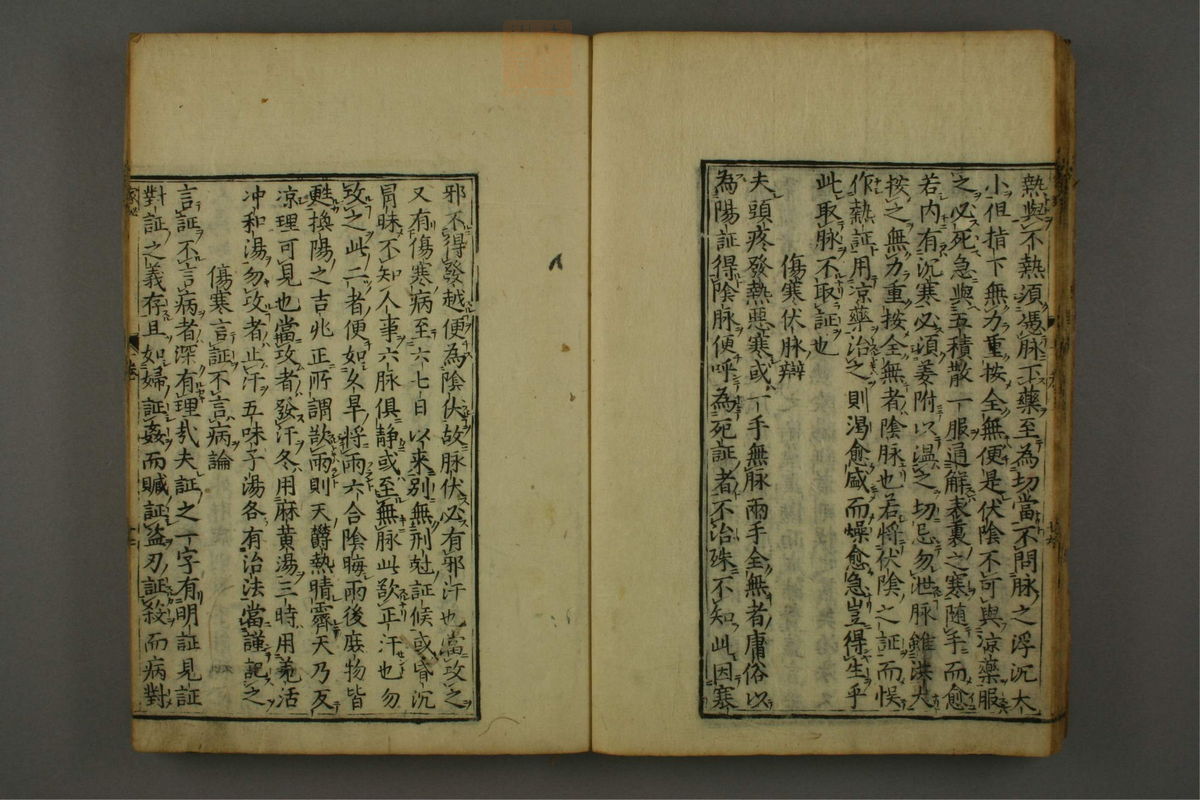 熱與不熱須憑脉下藥至為切當不問脉之浮沉大
小但指下無力重按全無便是伏陰不可與涼藥服
之必死急與五積散一服通解表裏之寒随手而愈
若内有沉寒必須姜附以温之切忌勿泄脉雖洪大
按之無力重按全無者陰脉也若将伏陰之証而悞
作熱証用涼藥治之則渴愈盛而燥愈急豈得生乎
此取脉不取証也
傷寒伏脉辯
夫頭疼發熱惡寒或一手無脉兩手全無者庸俗以
為陽証得陰脉便呼為死証者不治殊不知此因寒
邪不得發越便為陰伏故脉伏必有邪汗也當攻之
又有傷寒病至六七日以来別無刑尅証候或昏沉
冒昧不知人事六脉俱静或至無脉此欲正汗也勿
攻之此二者便如久旱将雨六合陰晦雨後庶物皆
甦換陽之吉兆正所謂欲雨則天欝熱晴霽天乃反
涼理可見也當攻者發汗冬用麻黄湯三時用羌活
冲和湯勿攻者止汗五味子湯各有治法當謹記之
傷寒言証不言病論
言証不言病者深有理㢤夫証之一字有明証見証
對証之義存且如婦証姦而贓証盗刃証殺而病對